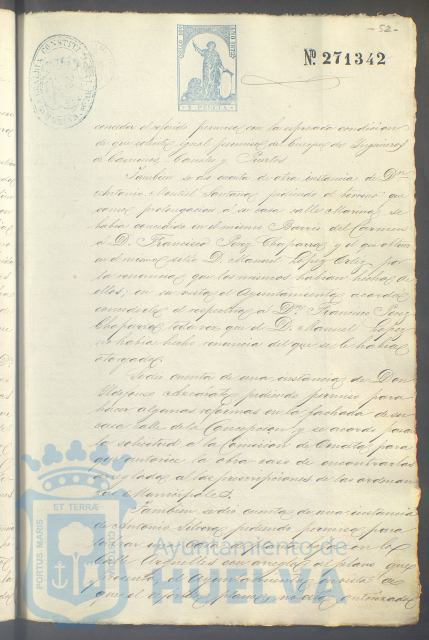 - 52 -
Nº 271342
AÑO 1872
1 PESETA
conceder el referido permiso con la expresada condicion
de que solicite igual permiso del Cuerpo de Ingenieros
de Caminos, Canales y Puertos
Tambien se dio cuenta de otra instancia de Dn
Antonio pidiendo el terreno que
como prolongacion á su casa calle Marina se
habia concedido en el mismo Barrio del Carmen
á D. Francisco Perez Chaparro y el que obtuvo
en el mismo sitio D. Manuel Lopez Ortiz por
la renuncia que los mismos habian hecho de
ellos; en su vista el Ayuntamiento acordó
concederle el respectivo á Dn Francisco Perez
Chaparro toda vez que el D. Manuel Lopez
no habia hecho renuncia del que se le habia
otorgado.
Se dió cuenta de una instancia de Don
Ildefonso pidiendo permiso para
hacer algunas reformas en la fachada de su
casa calle de la Concepcion y se acordó pasar
la solicitud á la Comision de Ornato para
que autorice la obra caso de encontrarlas
arregladas á las prescripciones de las ordenan-
zas Municipales.
Tambien se dió cuenta de una instancia
de Antonio pidiendo permiso para
labrar una casa en la
calle con arreglo al plano que
presenta el Ayuntamiento en vista de
que el referido plano no está autorizado
PORTUS MARIS
ET TERRÆ
Ayuntamiento de
HUELVA